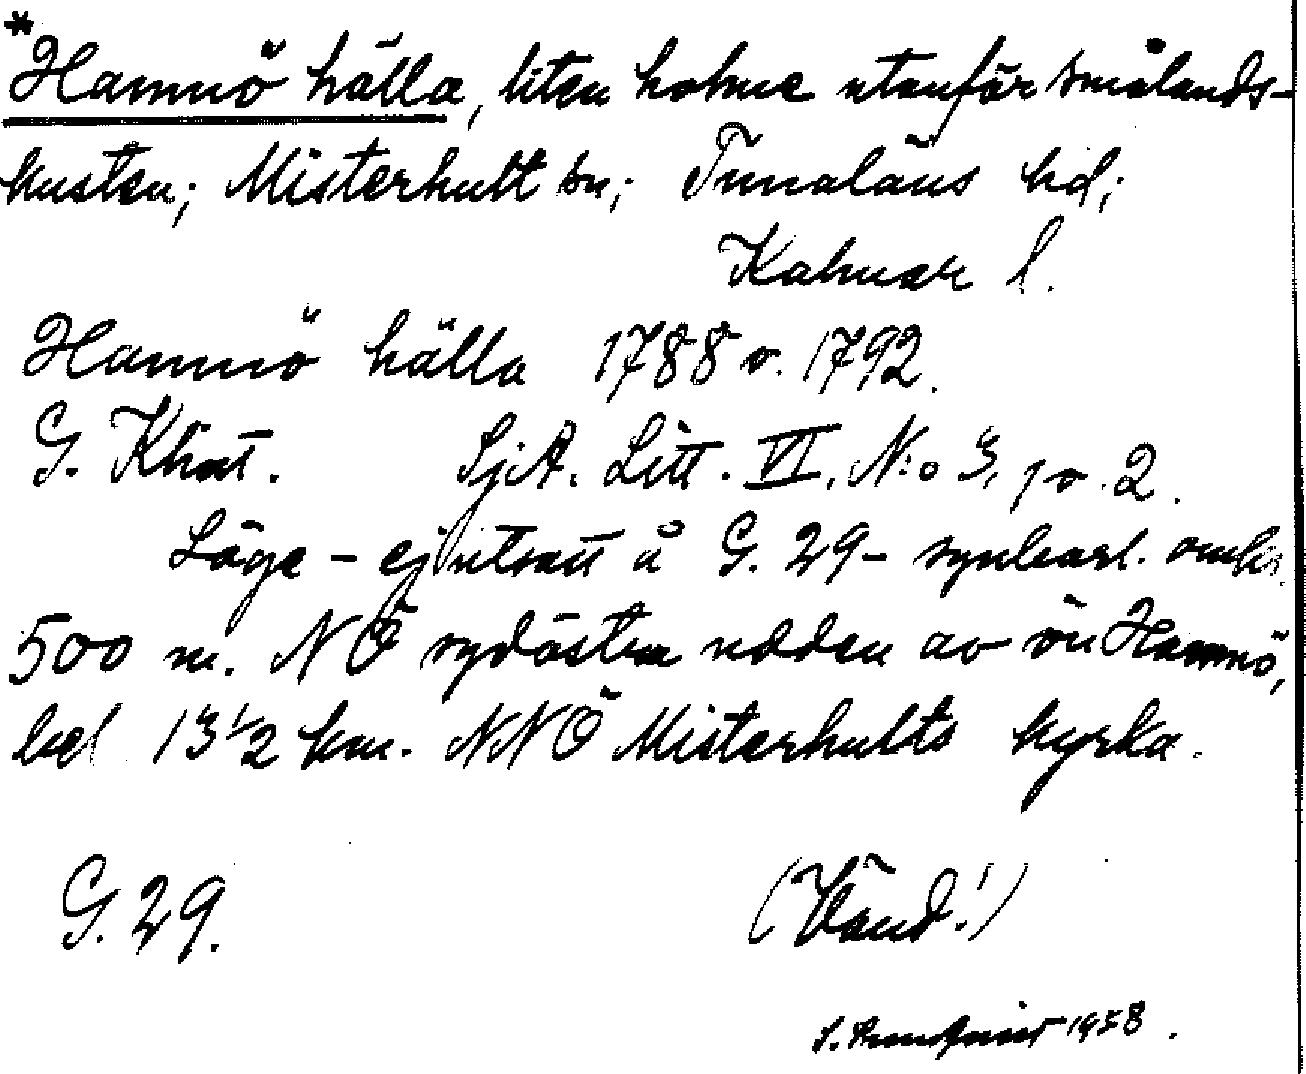 *Hamnö hälla, liten holme utanför smålands-
kusten; Misterhult sn; Tunaläns hd;
Kalmar l.
Hamnö hälla 1788 o. 1792.
G. Klint. SjA. Litt. VI. N:o 3, 1 o. 2.
Läge - ej utsatt å G. 29 - synbarl. omkr.
500 m. NÖ sydöstra udden av ön Hamnö,
bel 13 1/2 km. NNÖ Misterhults kyrka.
G. 29. (Vänd!)
S. 1958.